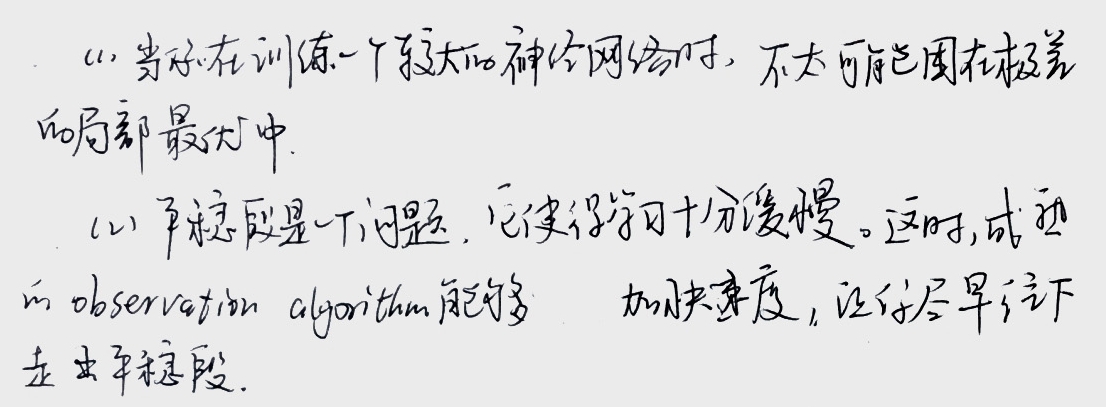 (1) 当你在训练一个较大的神经网络时，不太可能困在极差
的局部最优中.
(2) 平稳段是一个问题，它使得学习十分缓慢。这时，成熟
的 observation algorithm 能够 加快速度，让你尽早往下
走出平稳段.